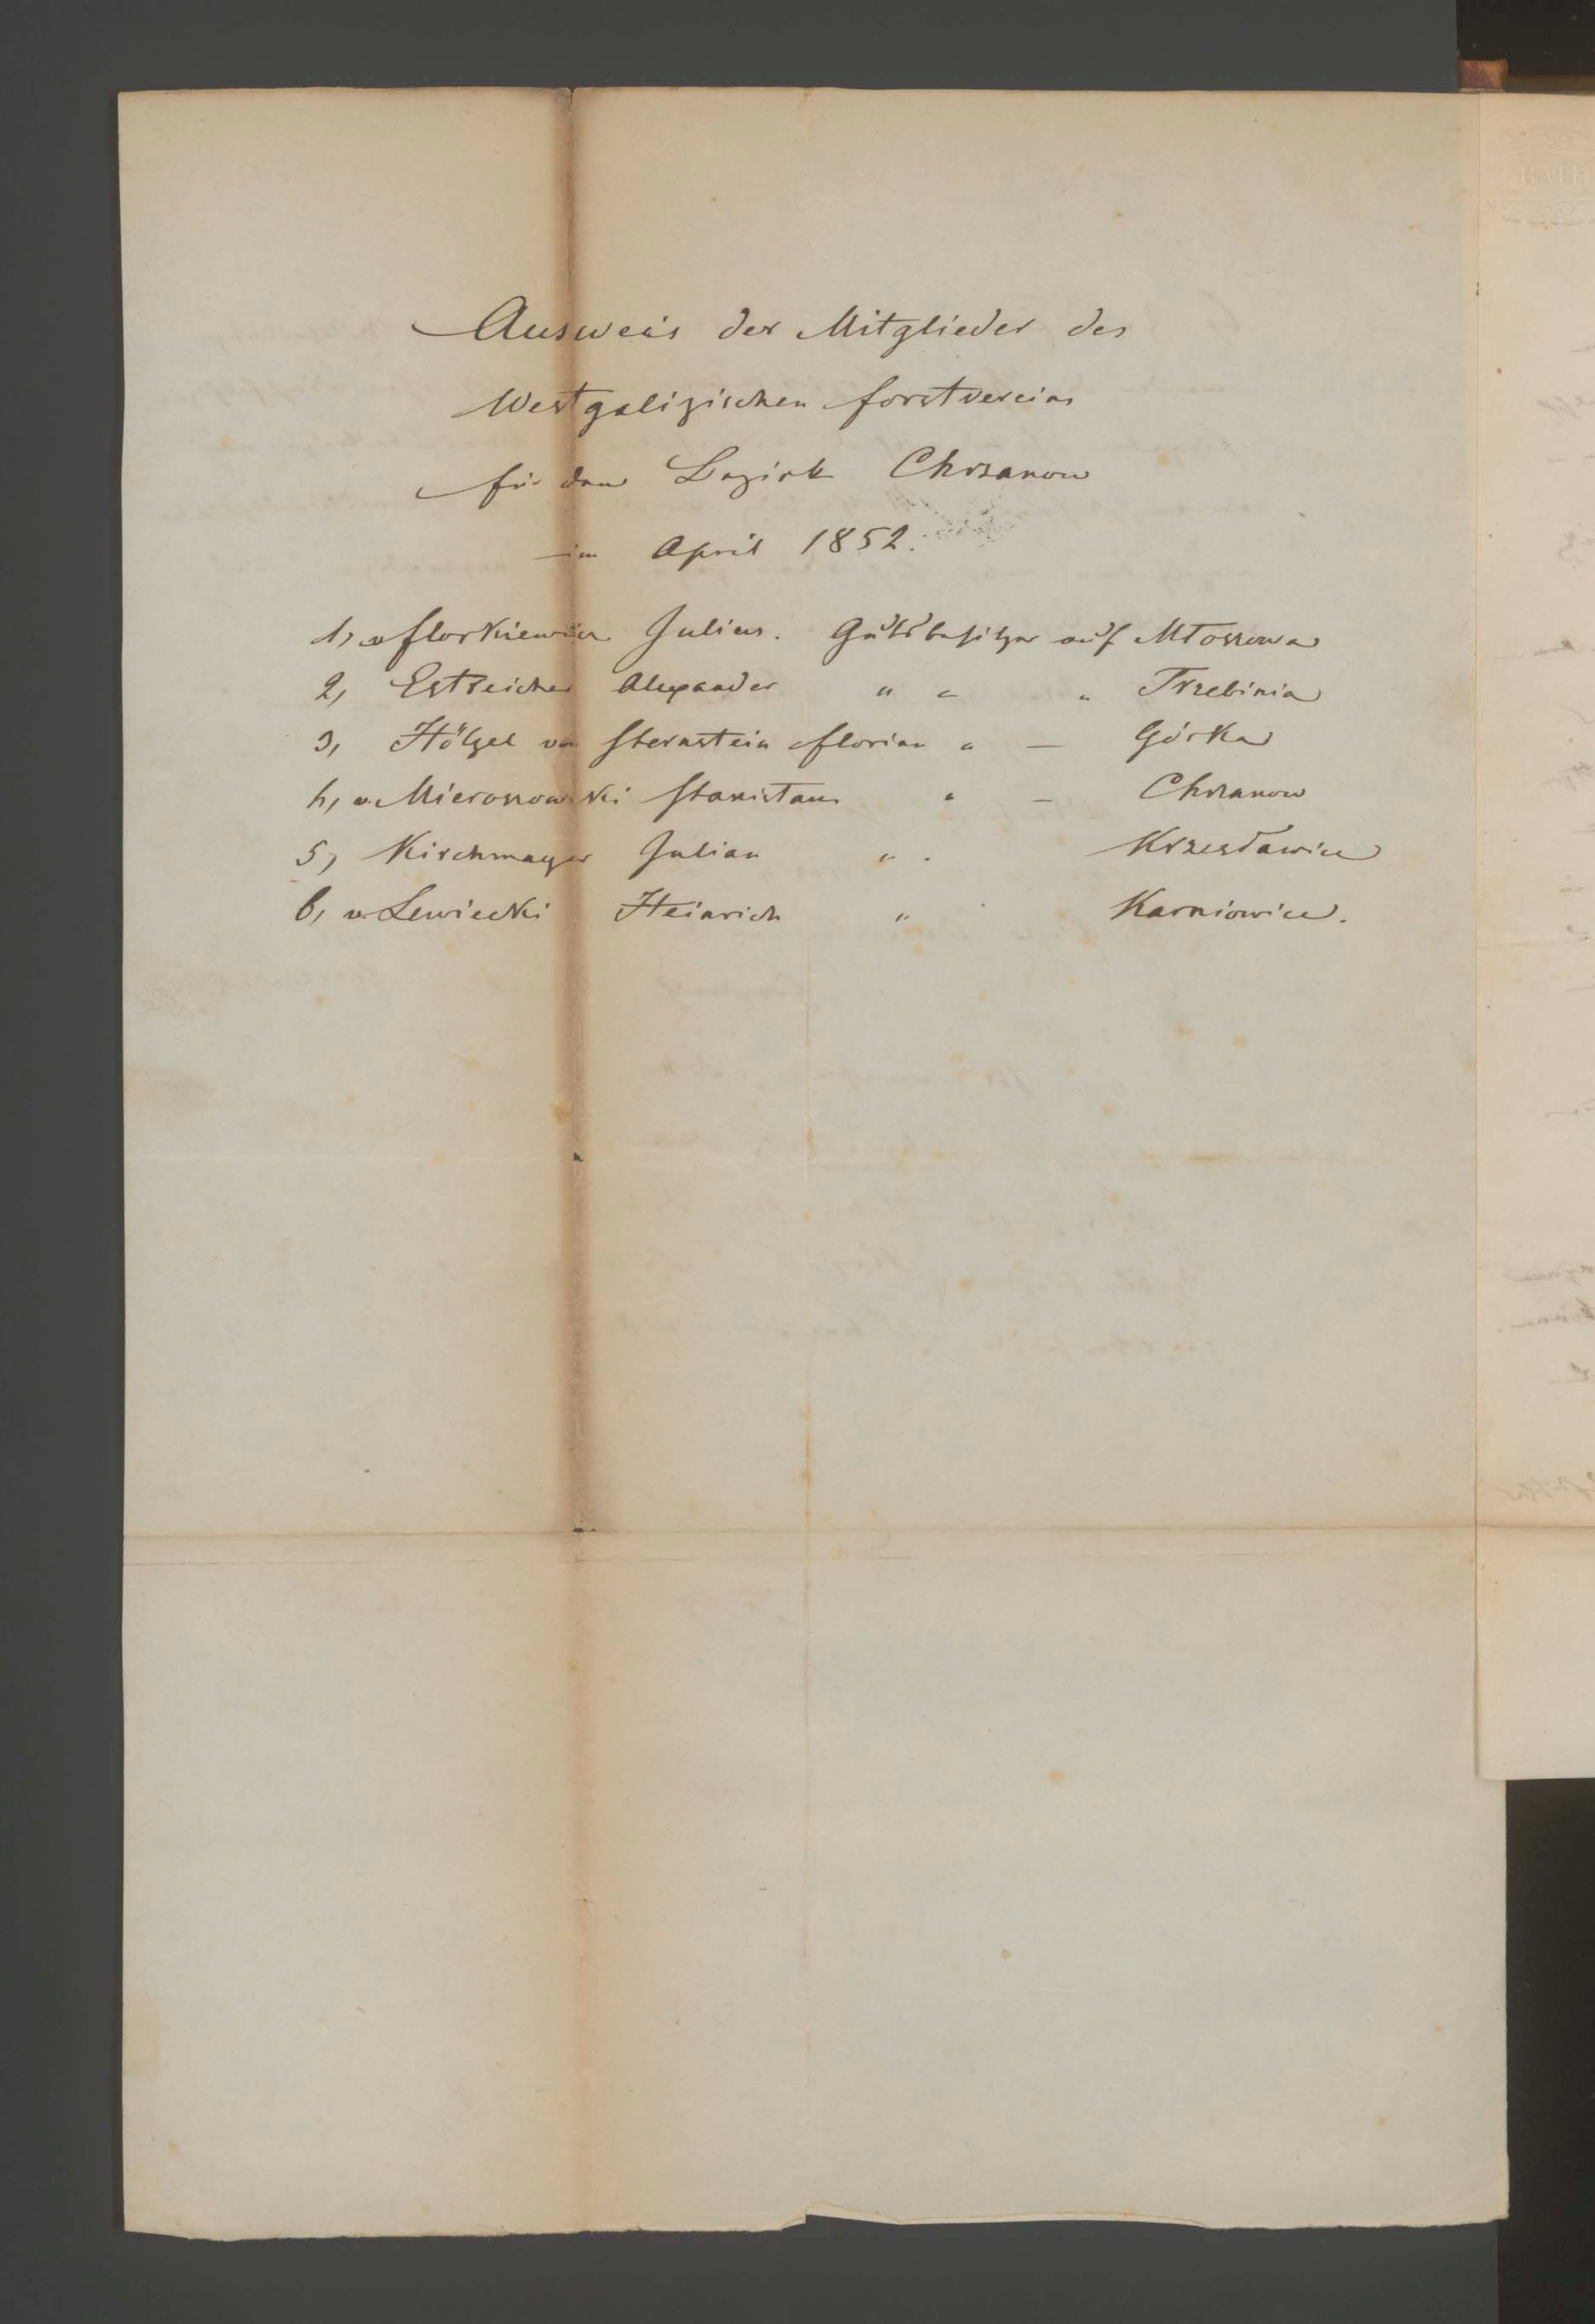 Ausweis der Mitglieder des
Westgalizischen Forstvereins
für den Bezirk Chrzanow
im April 1852.
1, v Florkiewicz Julius. Gutsbesitzer auf Młoszowa
2, Estreicher Alexander " " " Trzebinia
3, Hölzel von Sternstein Florian " — Górka
4, v. Mieroszowski Stanislaus " — Chrzanow
5, Kirchmayer Julian " . Krzesławice
6, v. Lewiecki Heinrich " Karniowice.